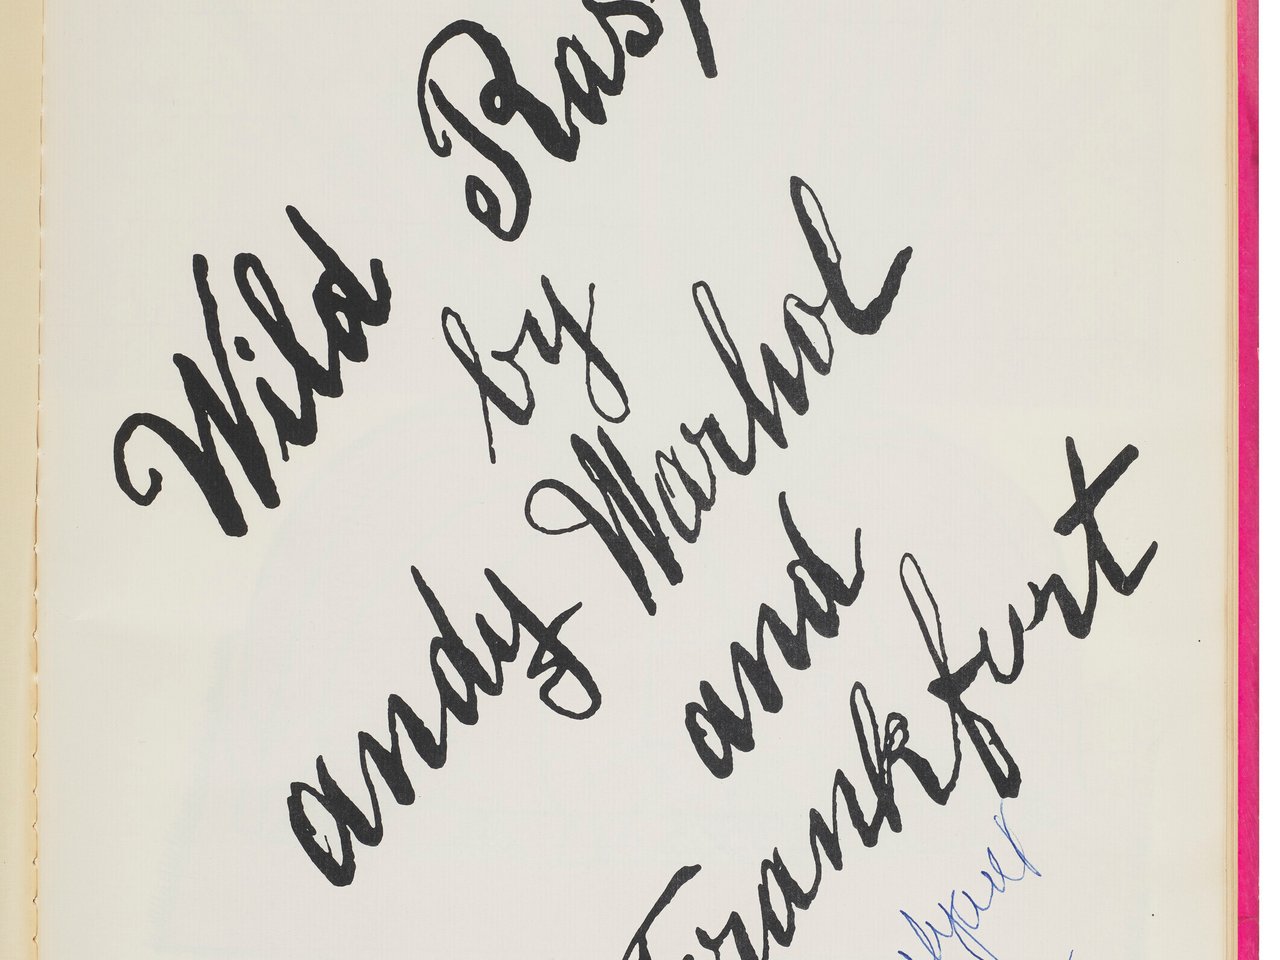 Wild Rasp
by
andy Warhol
and
Frankfurt